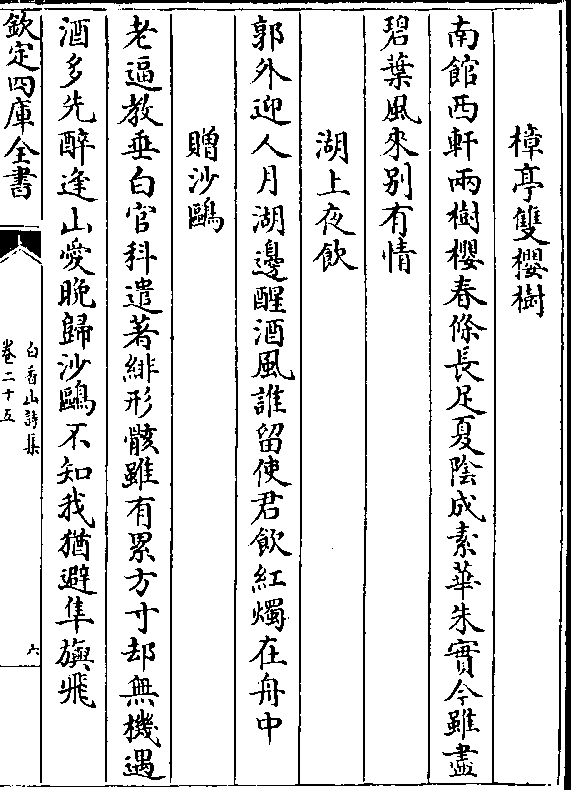 樟亭雙櫻樹
南館西軒兩樹櫻春條長足夏陰成素華朱實今雖盡
碧葉風來别有情
湖上夜飲
郭外迎人月湖邊醒酒風誰留使君飲紅燭在舟中
贈沙鷗
老逼教垂白官科遣著緋形骸雖有累方寸却無機遇
酒多先醉逢山愛晚歸沙鷗不知我猶避隼旟飛
欽定四庫全書
白香山詩集
卷二十五
六